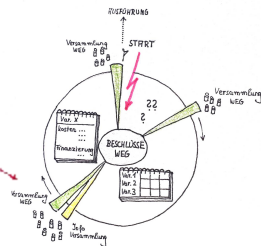 AUSFÜHRUNG
Versammlung
WEG
START
Versammlung
WEG
??
?
Var. X
Kosten ...
...
Finanzierung
...
BESCHLÜSSE
WEG
Var. 1
Var. 2
Var. 3
Versammlung
WEG
Info
Versammlung